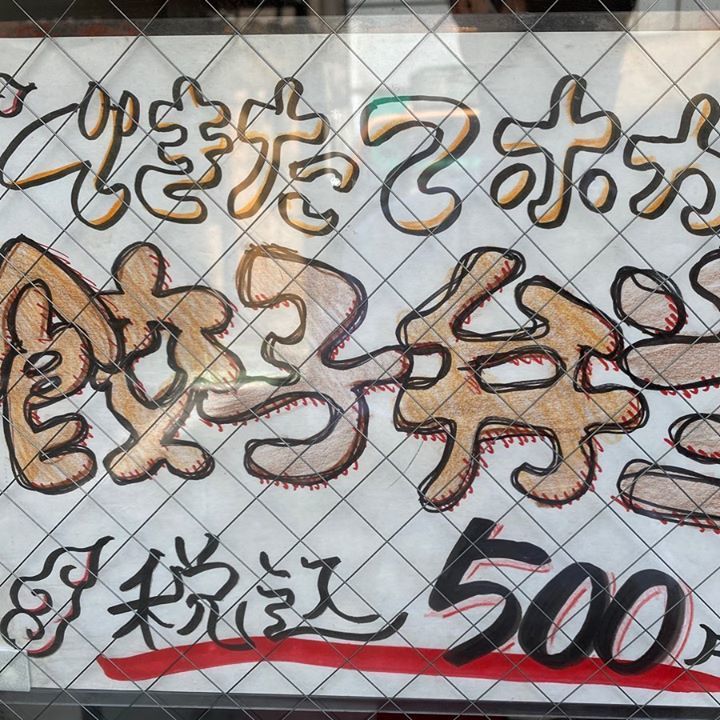 できたてホカ
餃子弁当
税込500円